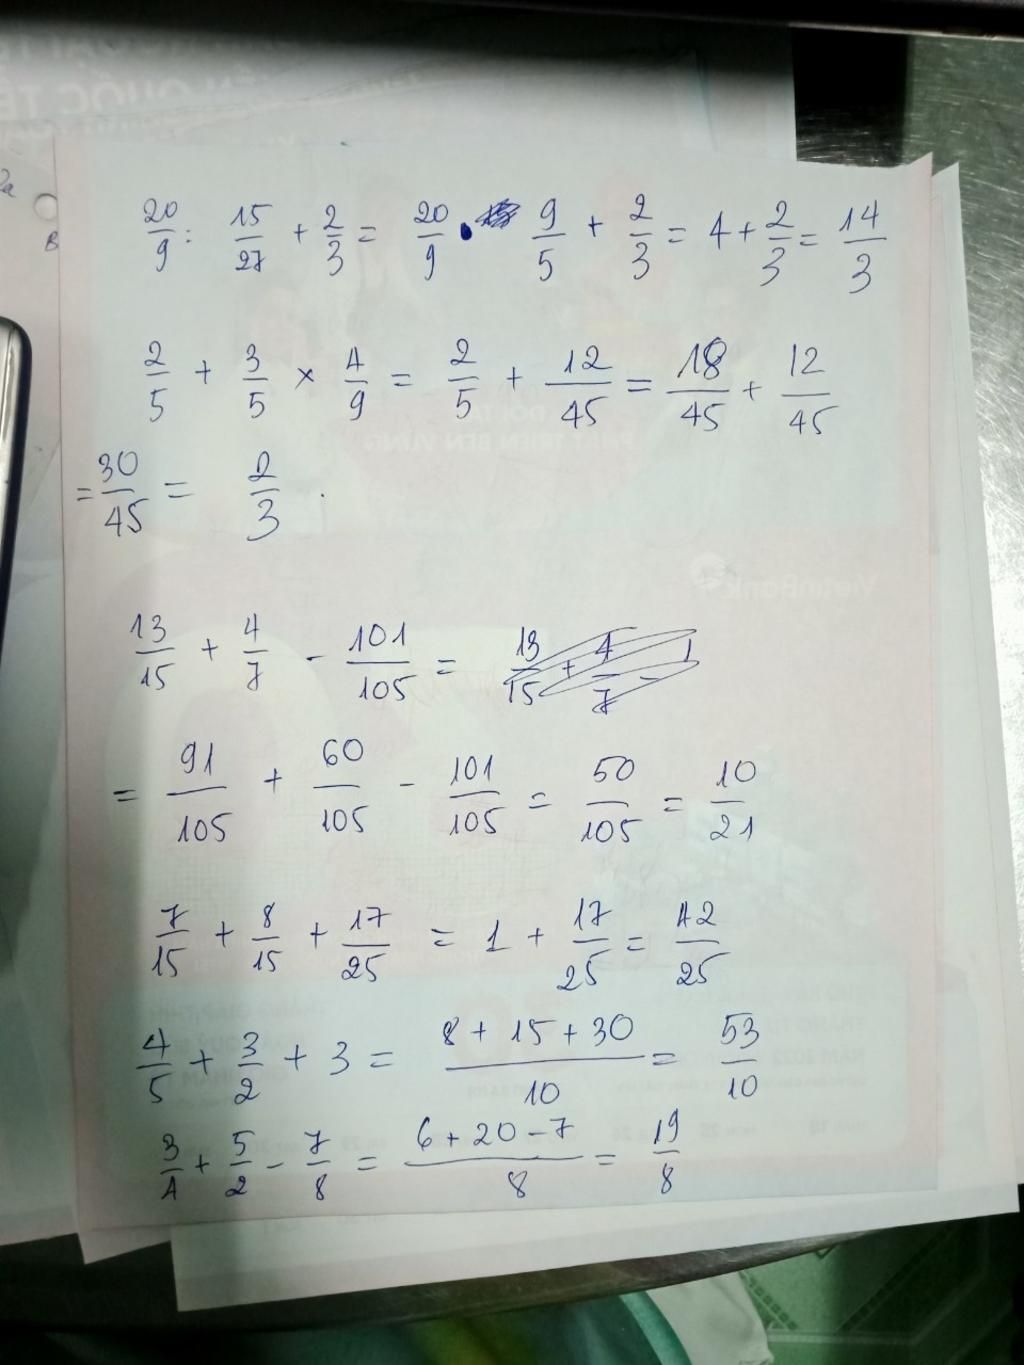 20/9 : 15/27 + 2/3 = 20/9 . 9/5 + 2/3 = 4 + 2/3 = 14/3
2/5 + 3/5 × 4/9 = 2/5 + 12/45 = 18/45 + 12/45
= 30/45 = 2/3 .
13/15 + 4/7 - 101/105 =
= 91/105 + 60/105 - 101/105 = 50/105 = 10/21
7/15 + 8/15 + 17/25 = 1 + 17/25 = 42/25
4/5 + 3/2 + 3 = (8 + 15 + 30)/10 = 53/10
3/4 + 5/2 - 7/8 = (6 + 20 - 7)/8 = 19/8